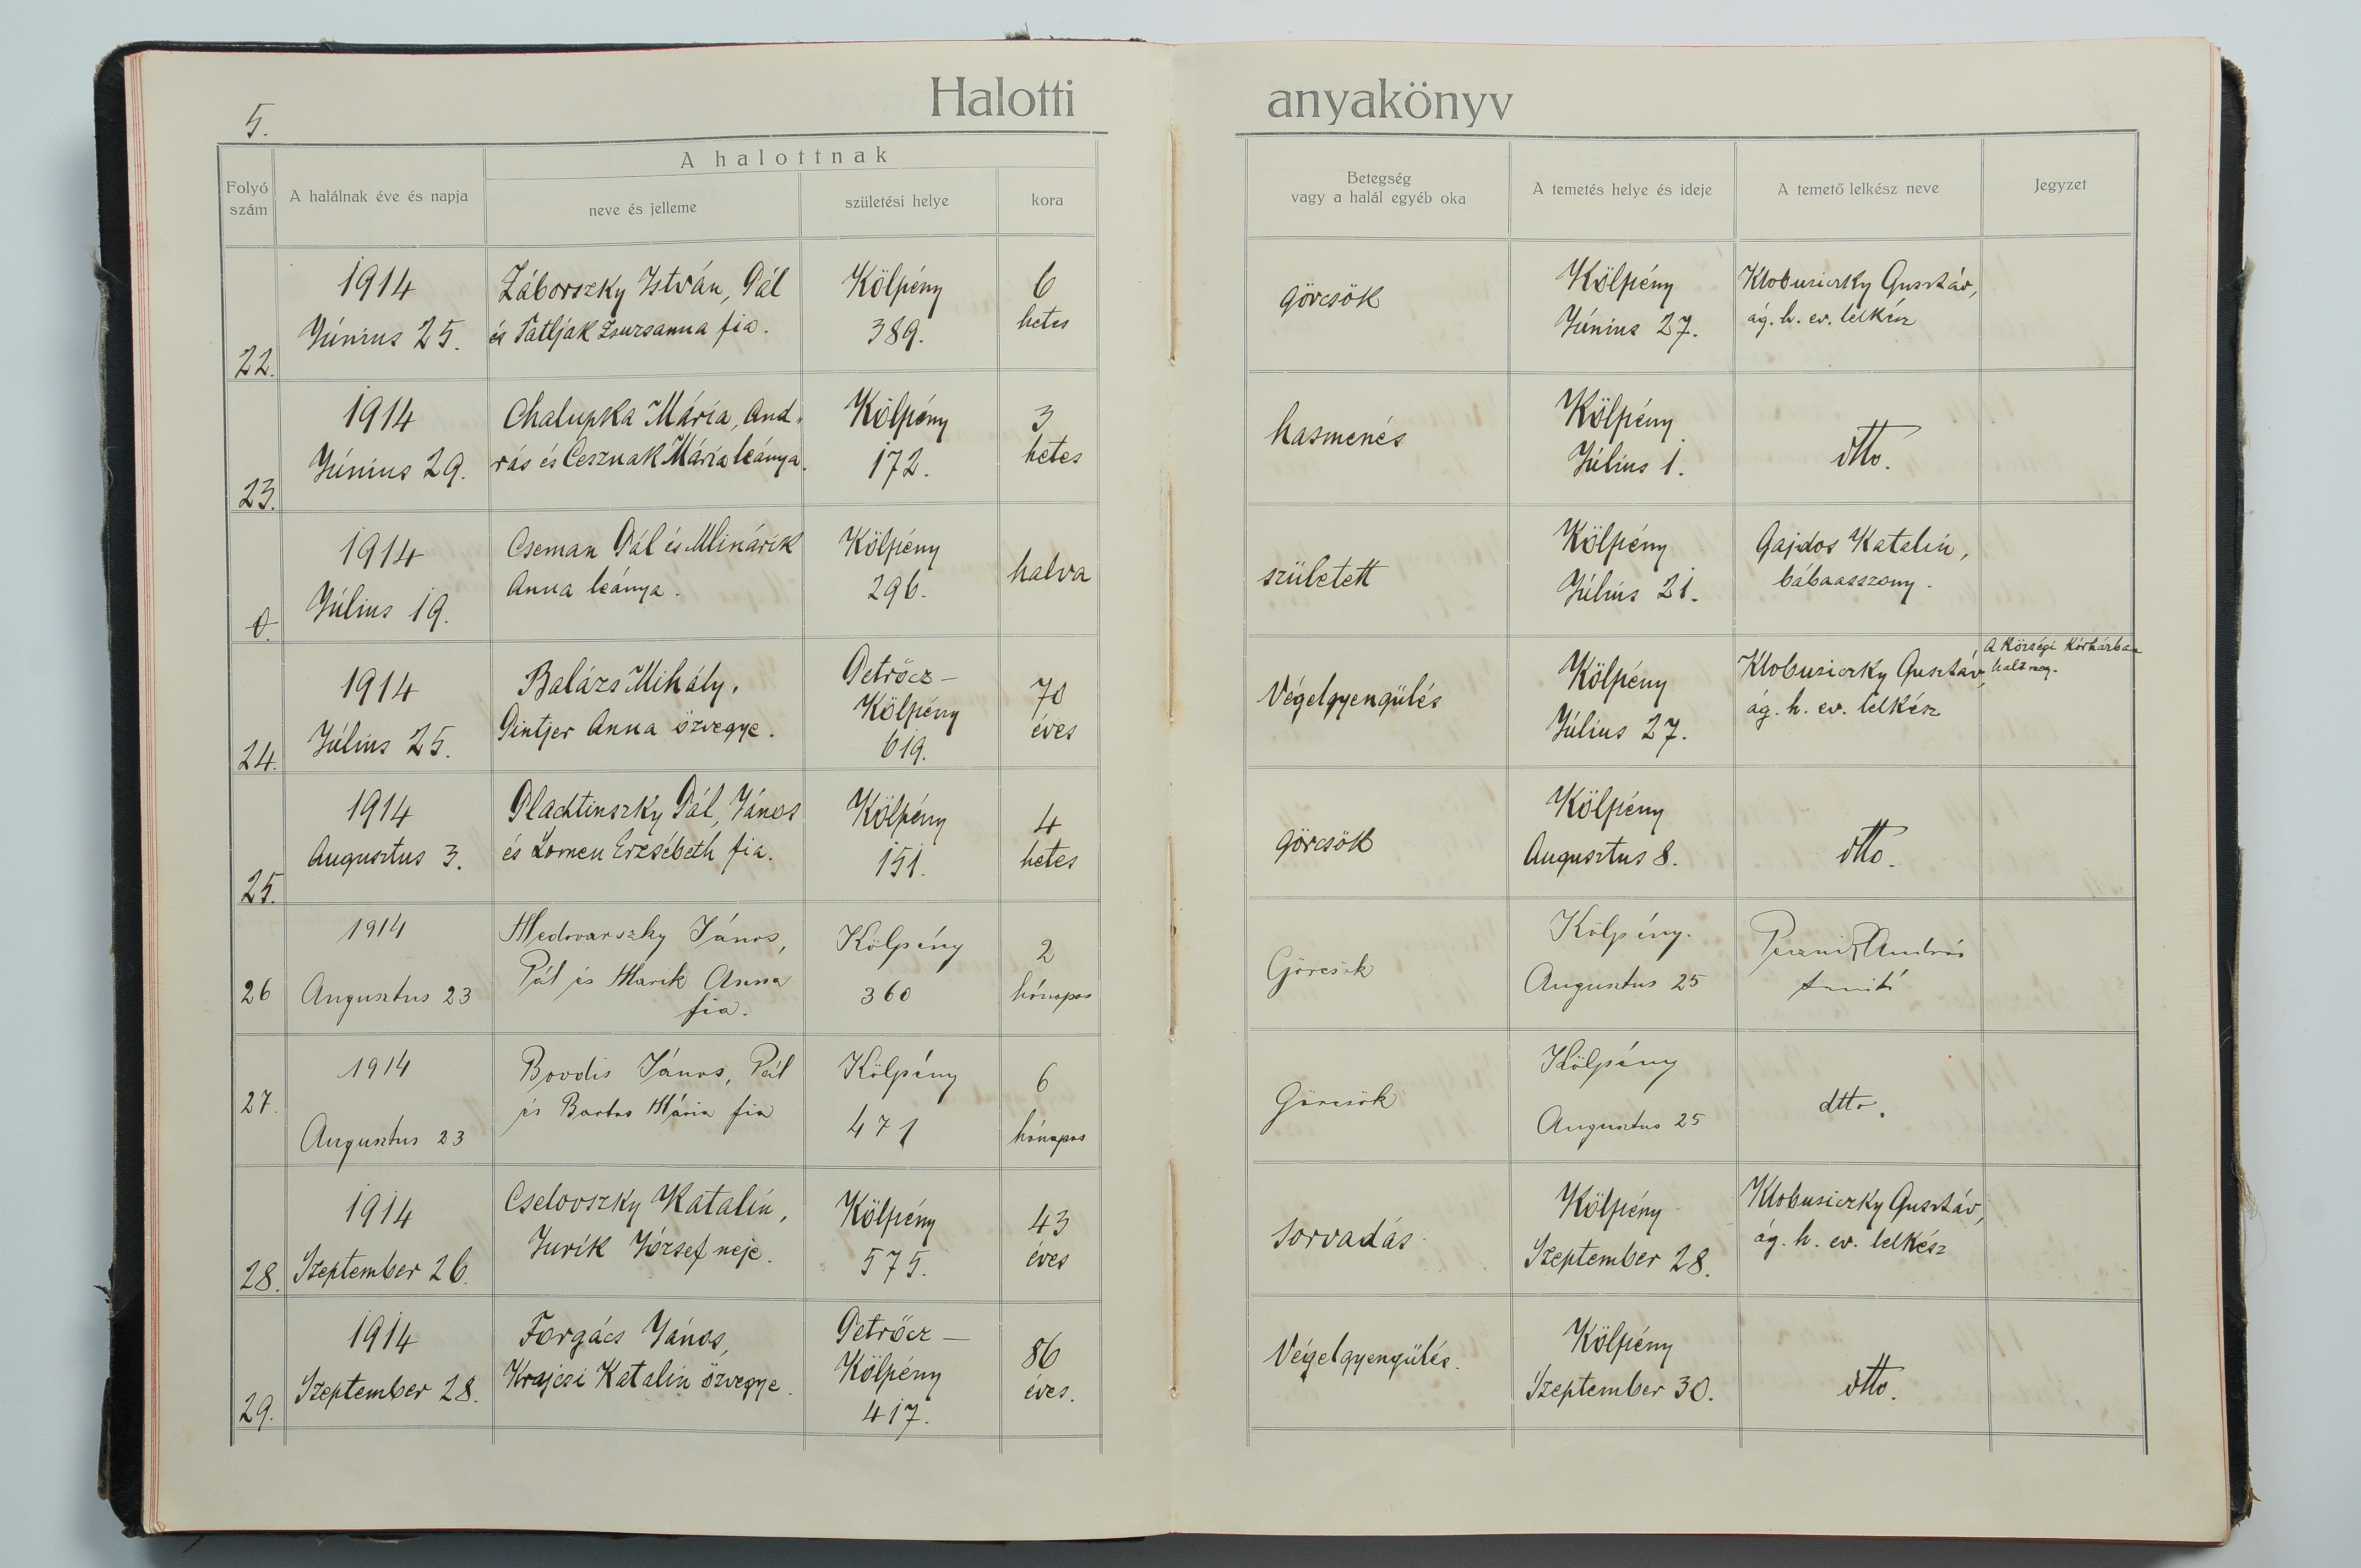 5.
Halotti anyakönyv
Folyó
szám
A halálnak éve és napja
A halottnak
neve és jelleme
születési helye
kora
Betegség
vagy a halál egyéb oka
A temetés helye és ideje
A temető lelkész neve
Jegyzet
22.
1914
Június 25.
Záborszky István, Pál
és Patljak Zsuzsanna fia.
Kölpény
389.
6
hetes
görcsök
Kölpény
Június 27.
Klobusiczky Gusztáv,
ág. h. ev. lelkész
23.
1914
Június 29.
Chalupka Mária, And-
rás és Cesznak Mária leánya.
Kölpény
172.
3
hetes
hasmenés
Kölpény
Július 1.
dtto.
0.
1914
Július 19.
Cseman Pál és Mlinárik
Anna leánya.
Kölpény
296.
halva
született
Kölpény
Július 21.
Gajdos Katalin,
bábaasszony.
24.
1914
Július 25.
Balázs Mihály,
Pintjer Anna özvegye.
Petrőcz-
Kölpény
619.
70
éves
Végelgyengülés
Kölpény
Július 27.
Klobusiczky Gusztáv,
ág. h. ev. lelkész
A községi kórházban
halt meg.
25.
1914
Augusztus 3.
Plachtinszky Pál, János
és Lomen Erzsébeth fia.
Kölpény
151.
4
hetes
görcsök
Kölpény
Augusztus 8.
dtto.
26
1914
Augusztus 23
Medovarszky János,
Pál és Marik Anna
fia.
Kölpény
360
2
hónapos
Görcsök
Kölpény.
Augusztus 25
András
tanító
27.
1914
Augusztus 23
Bovdis János, Pál
és Bartos Mária fia
Kölpény
471
6
hónapos
Görcsök
Kölpény
Augusztus 25
dtto.
28.
1914
Szeptember 26.
Cselovszky Katalin,
Jurik József neje.
Kölpény
575.
43
éves
sorvadás
Kölpény
Szeptember 28.
Klobusiczky Gusztáv,
ág. h. ev. lelkész
29.
1914
Szeptember 28.
Forgács János,
Krajcsi Katalin özvegye.
Petrőcz-
Kölpény
417.
86
éves.
Végelgyengülés.
Kölpény
Szeptember 30.
dtto.